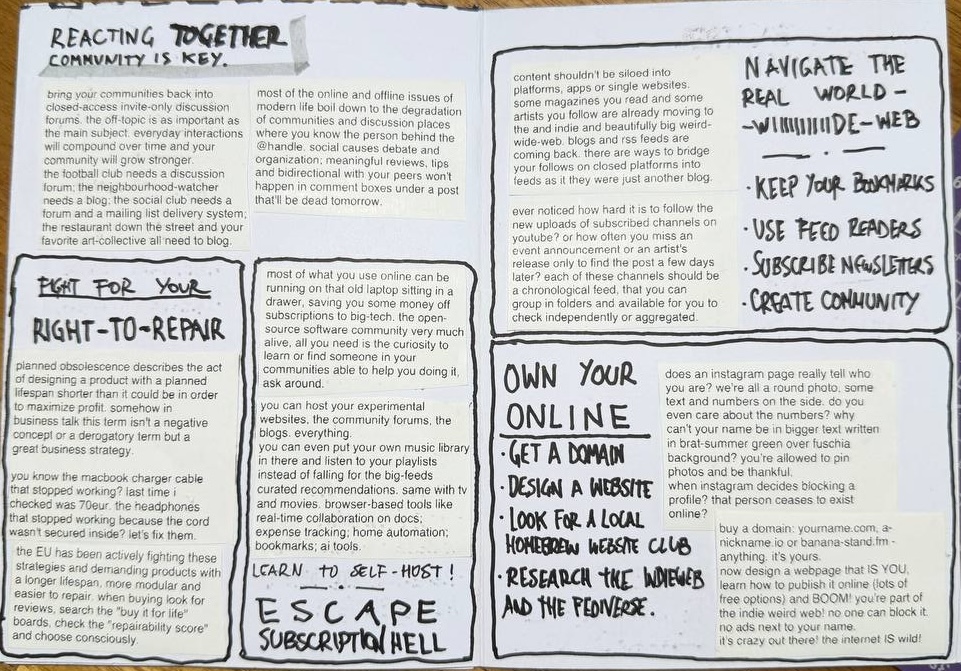 REACTING TOGETHER
COMMUNITY IS KEY.
bring your communities back into
closed-access invite-only discussion
forums. the off-topic is as important as
the main subject. everyday interactions
will compound over time and your
community will grow stronger.
the football club needs a discussion
forum; the neighbourhood-watcher
needs a blog; the social club needs a
forum and a mailing list delivery system;
the restaurant down the street and your
favorite art-collective all need to blog.
most of the online and offline issues of
modern life boil down to the degradation
of communities and discussion places
where you know the person behind the
@handle. social causes debate and
organization; meaningful reviews, tips
and bidirectional with your peers won't
happen in comment boxes under a post
that'll be dead tomorrow.
FIGHT FOR YOUR
RIGHT-TO-REPAIR
planned obsolescence describes the act
of designing a product with a planned
lifespan shorter than it could be in order
to maximize profit. somehow in
business talk this term isn't a negative
concept or a derogatory term but a
great business strategy.
you know the macbook charger cable
that stopped working? last time i
checked was 70eur. the headphones
that stopped working because the cord
wasn't secured inside? let's fix them.
the EU has been actively fighting these
strategies and demanding products with
a longer lifespan, more modular and
easier to repair. when buying look for
reviews, search the "buy it for life"
boards, check the "repairability score"
and choose consciously.
most of what you use online can be
running on that old laptop sitting in a
drawer, saving you some money off
subscriptions to big-tech. the open-
source software community very much
alive, all you need is the curiosity to
learn or find someone in your
communities able to help you doing it,
ask around.
you can host your experimental
websites, the community forums, the
blogs. everything.
you can even put your own music library
in there and listen to your playlists
instead of falling for the big-feeds
curated recommendations. same with tv
and movies. browser-based tools like
real-time collaboration on docs;
expense tracking; home automation;
bookmarks; ai tools.
LEARN TO SELF-HOST!
ESCAPE
SUBSCRIPTION HELL
content shouldn't be siloed into
platforms, apps or single websites.
some magazines you read and some
artists you follow are already moving to
the and indie and beautifully big weird-
wide-web. blogs and rss feeds are
coming back. there are ways to bridge
your follows on closed platforms into
feeds as it they were just another blog.
ever noticed how hard it is to follow the
new uploads of subscribed channels on
youtube? or how often you miss an
event announcement or an artist's
release only to find the post a few days
later? each of these channels should be
a chronological feed, that you can
group in folders and available for you to
check independently or aggregated.
NAVIGATE THE
REAL WORLD-
-WIIIIIIIIIDE-WEB
· KEEP YOUR BOOKMARKS
· USE FEED READERS
· SUBSCRIBE NEWSLETTERS
· CREATE COMMUNITY
OWN YOUR
ONLINE
· GET A DOMAIN
· DESIGN A WEBSITE
· LOOK FOR A LOCAL
HOMEBREW WEBSITE CLUB
· RESEARCH THE INDIEWEB
AND THE FEDIVERSE.
does an instagram page really tell who
you are? we're all a round photo, some
text and numbers on the side. do you
even care about the numbers? why
can't your name be in bigger text written
in brat-summer green over fuschia
background? you're allowed to pin
photos and be thankful.
when instagram decides blocking a
profile? that person ceases to exist
online?
buy a domain: yourname.com, a-
nickname.io or banana-stand.fm -
anything. it's yours.
now design a webpage that IS YOU,
learn how to publish it online (lots of
free options) and BOOM! you're part of
the indie weird web! no one can block it.
no ads next to your name.
it's crazy out there! the internet IS wild!